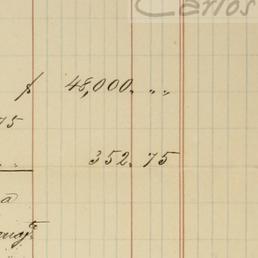 Carlos
$ 48,000. " "
75
" "
352. 75
a